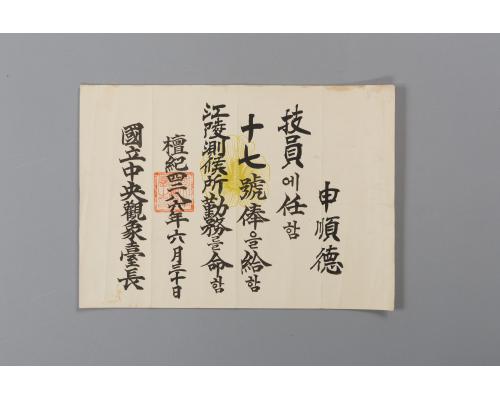 申順德
技員에任함
十七號俸을給함
江陵測候所勤務를命함
檀紀四二八六年六月三十日
國立中央觀象臺長